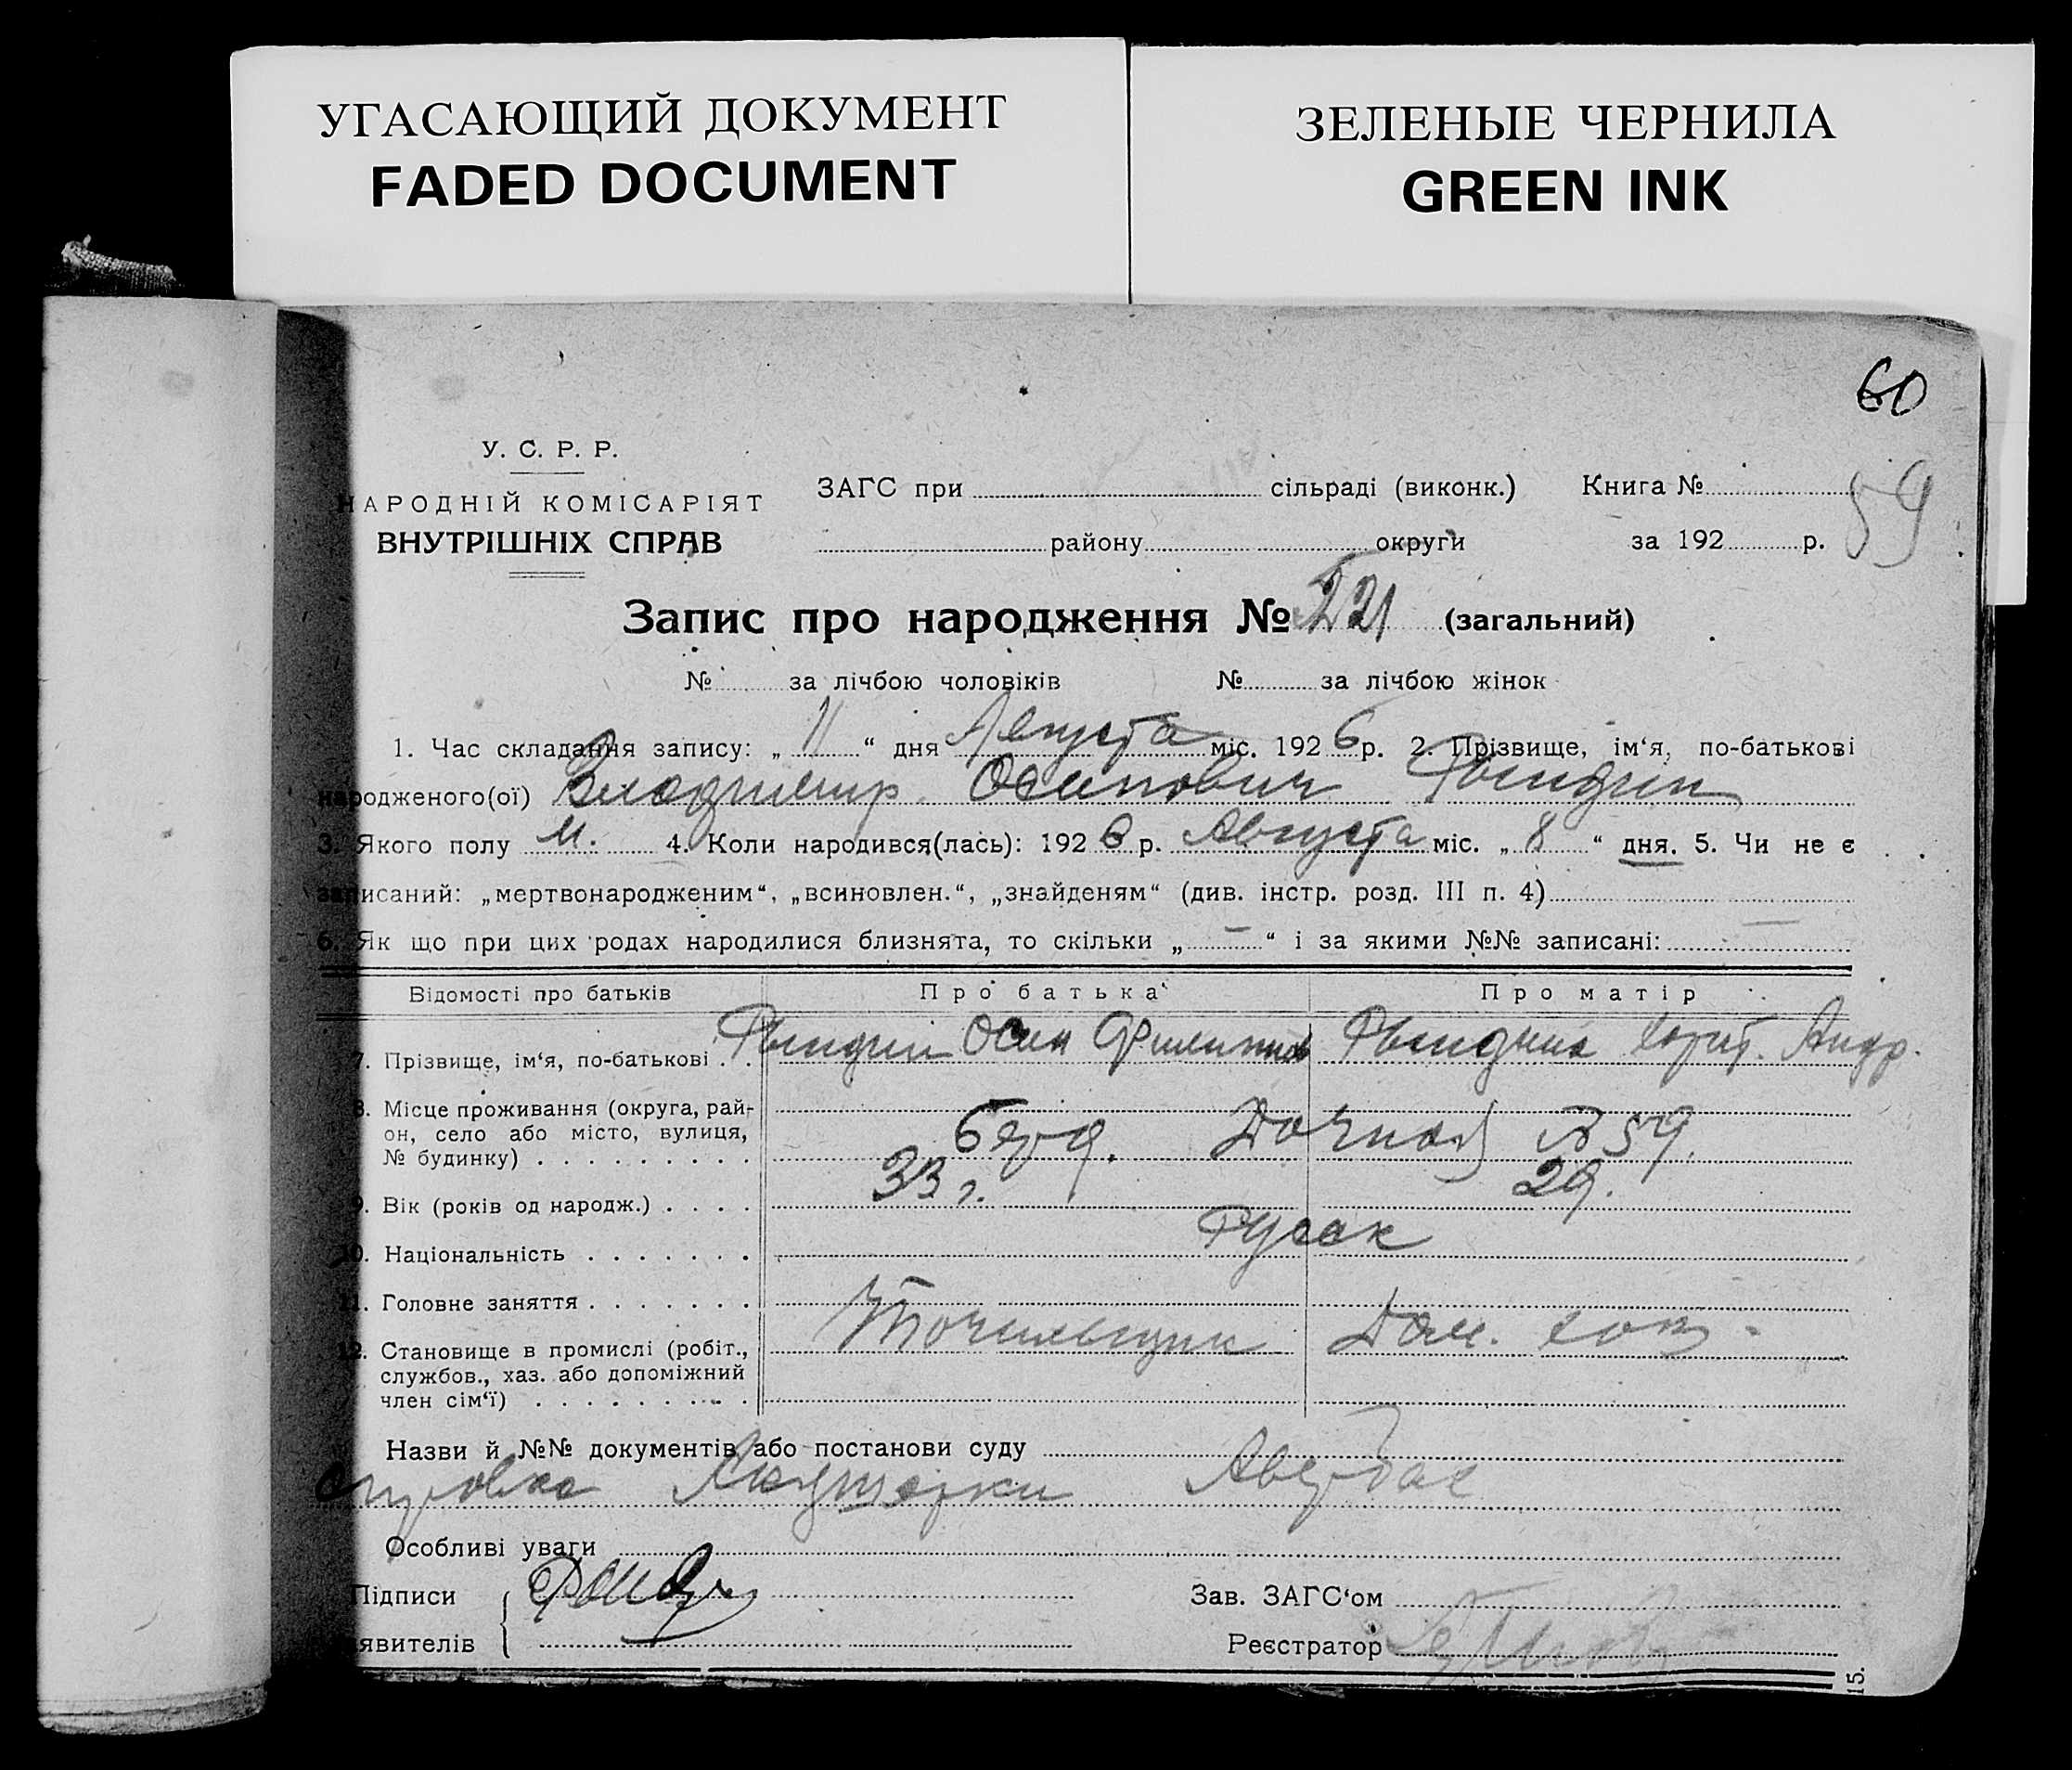 УГАСАЮЩИЙ ДОКУМЕНТ
FADED DOCUMENT
ЗЕЛЕНЫЕ ЧЕРНИЛА
GREEN INK
60
59
У. С. Р. Р.
НАРОДНІЙ КОМІСАРІЯТ
ВНУТРІШНІХ СПРАВ
ЗАГС при сільраді (виконк.) Книга №
району округи за 192 р.
Запис про народження № 221 (загальний)
№ за лічбою чоловіків № за лічбою жінок
1. Час складання запису: „ 11 “ дня Августа міс. 192 6 р. 2. Прізвище, ім‘я, по-батькові
народженого(ої) Владимир Осипович
3. Якого полу м. 4. Коли народився(лась): 192 6 р. Августа міс. „ 8 “ дня. 5. Чи не є
записаний: „мертвонародженим“, „всиновлен.“, „знайденям“ (див. інстр. розд. III п. 4)
6. Як що при цих родах народилися близнята, то скільки „ — “ і за якими №№ записані: —
Відомості про батьків Про батька Про матір
7. Прізвище, ім‘я, по-батькові . . Осип Филиппов Андр.
8. Місце проживання (округа, рай-
он, село або місто, вулиця,
№ будинку) . . . . . . . . . Берд. Дачная № 59.
9. Вік (років од народж.) . . . . 33 г. 29.
10. Національність . . . . . . . Русск
11. Головне заняття . . . . . . .
12. Становище в промислі (робіт., Точильщик Дом. хоз.
службов., хаз. або допоміжний
член сім‘ї) . . . . . . . . . .
Назви й №№ документів або постанови суду
справка Акушерки Авербах
Особливі уваги
Підписи Зав. ЗАГС‘ом
заявителів Реєстратор
15.